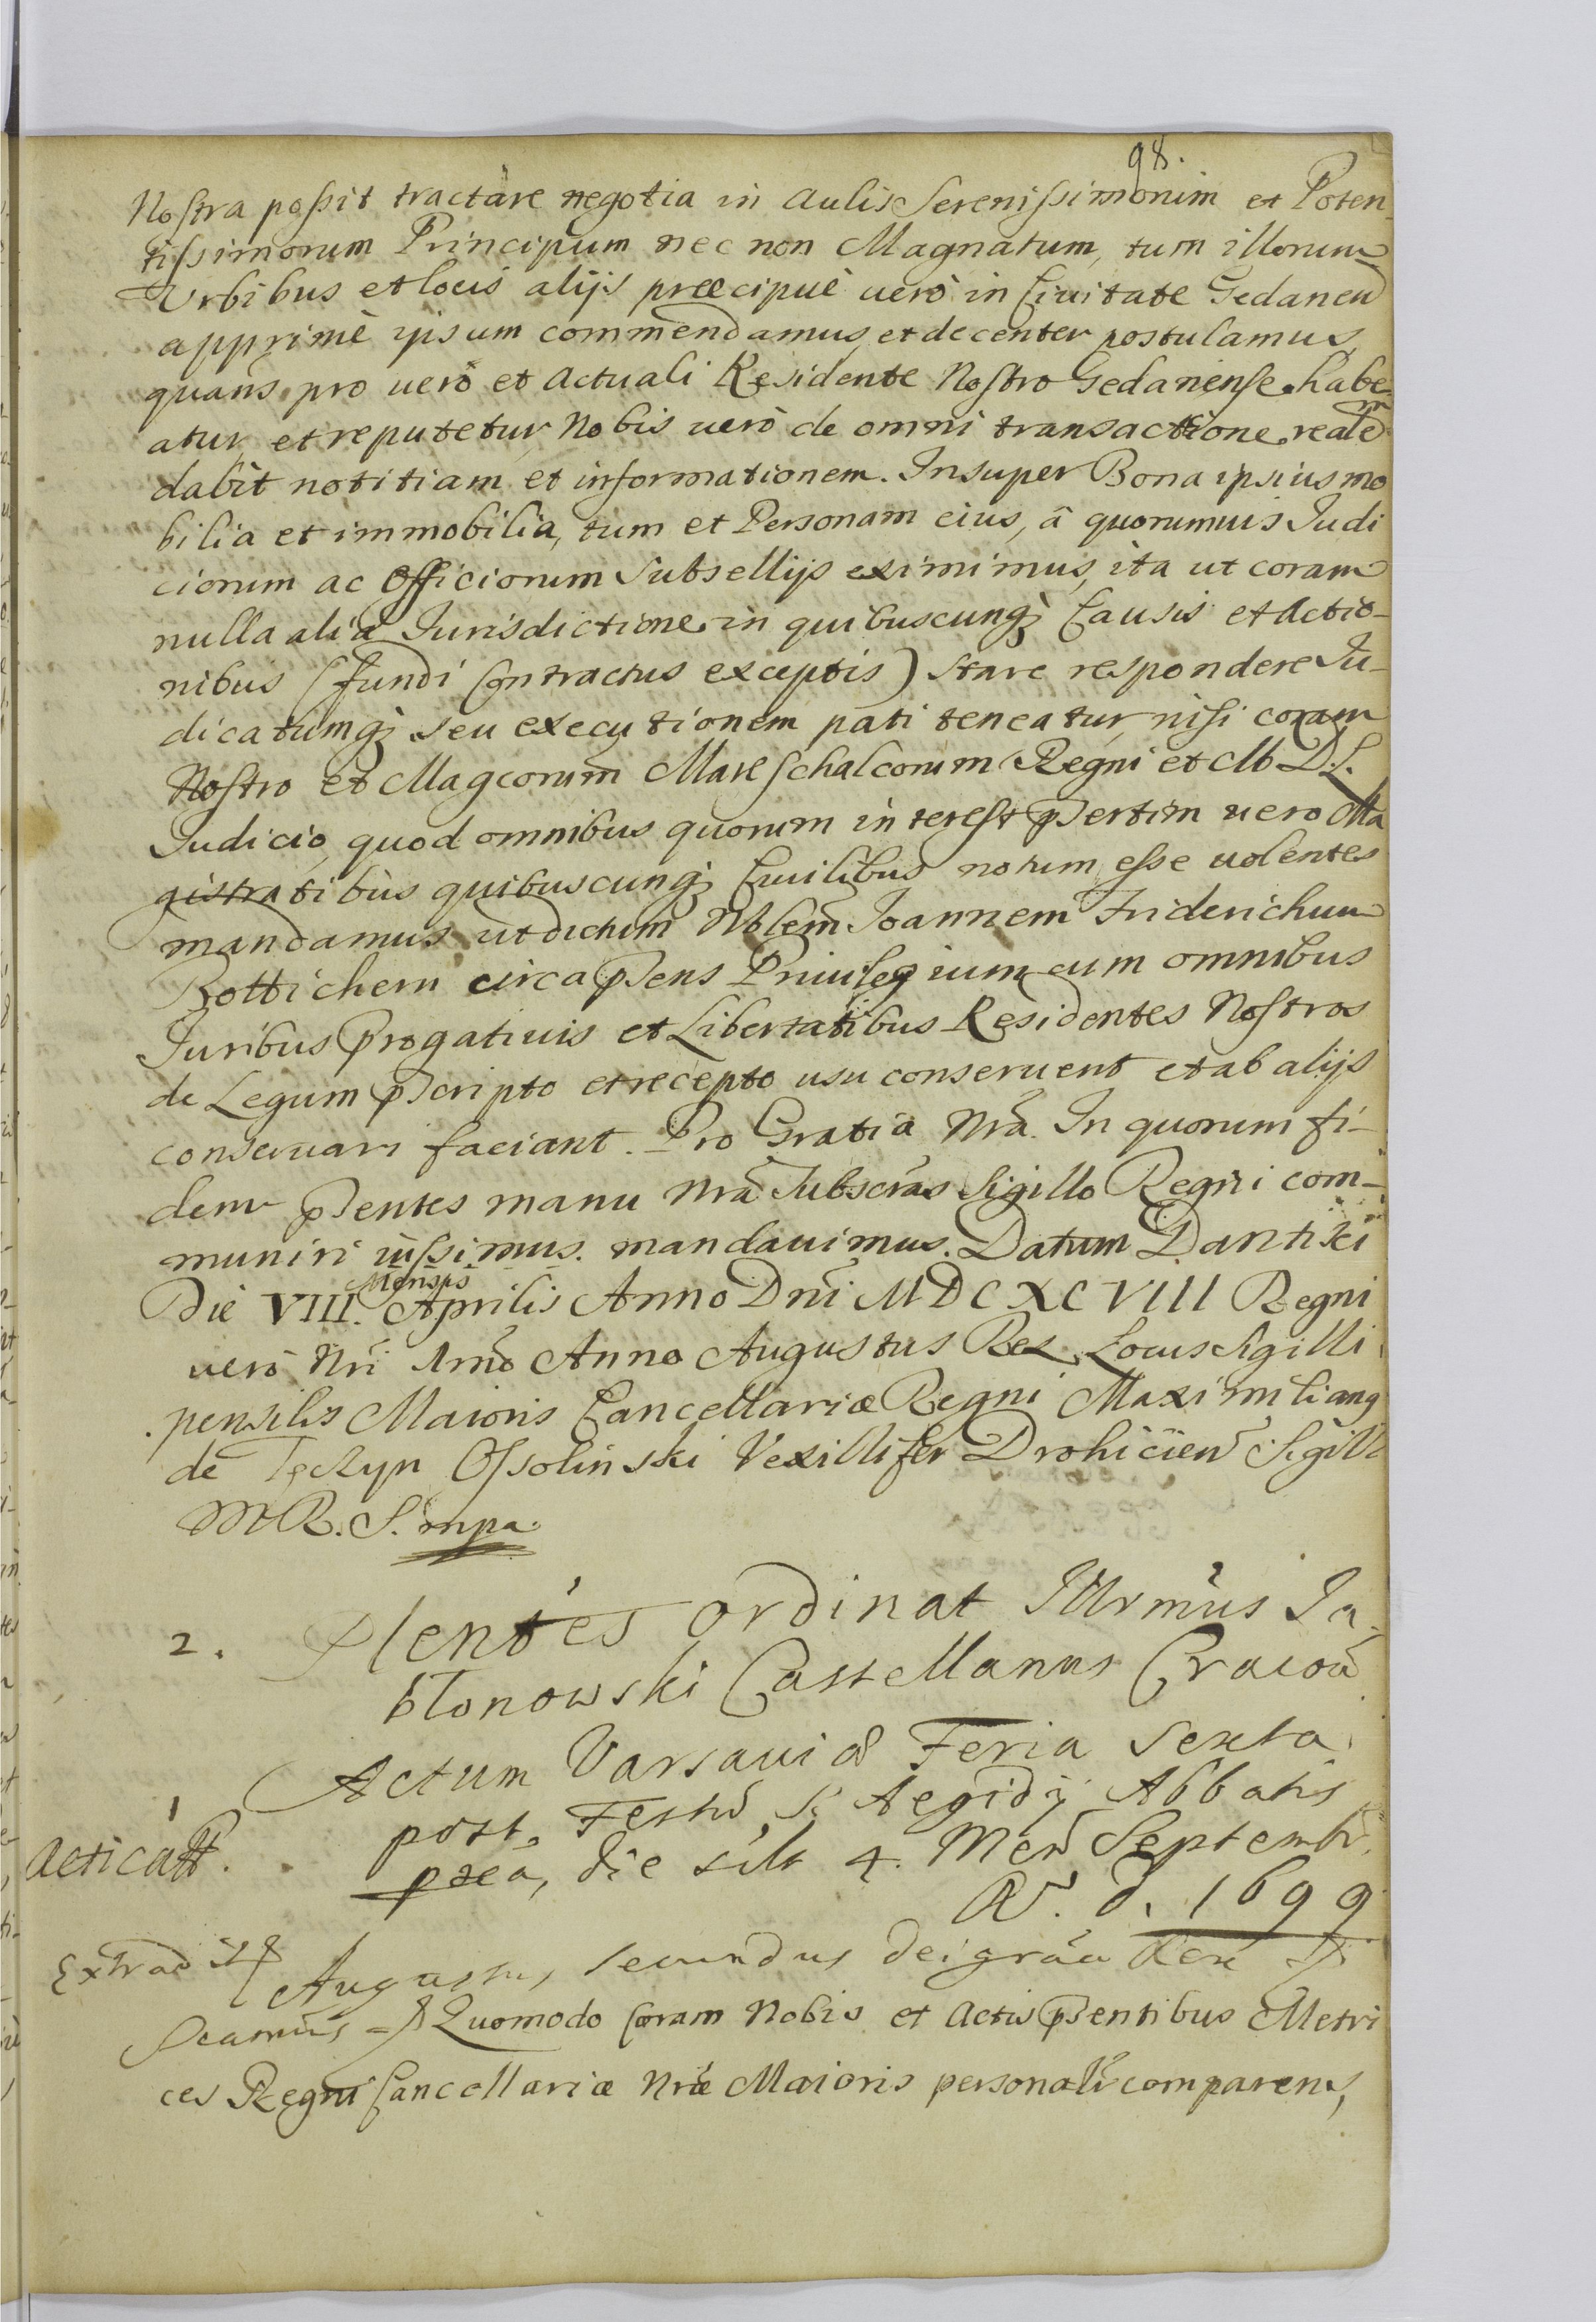 98.
Nostra possit tractare negotia in Aulis Serenissimorum et Poten-
tissimorum Principum nec non Magnatum, tum illorum
Urbibus et locis alijs præcipuè uerò in Ciuitate Gedanen
apprimè ipsum commendamus, et decenter postulamus,
pro uerò et Actuali Residente Nostro Gedanense habe-
atur, et reputetur, Nobis uerò de omni transactione realem
dabit notitiam et informationem. Insuper Bona ipsius mo
bilia et immobilia, tum et Personam eius, â quorumuis Judi
ciorum ac Officiorum Subsellijs eximimus, ita ut coram
nulla aliâ Jurisdictione in quibuscunq3 Causis et Actio-
nibus (fundi Contractus exceptis) stare respondere Ju-
dicatumq3 seu executionem pati teneatur, nisi coram
Nostro et Magcorum Mareschalcorum Regni et M D. L.
Judicio, quod omnibus quorum interest psertim uero Ma
gistratibus quibuscunq3 Ciuilibus notum esse uolentes
mandamus ut dictum Nblem Joannem Friderichum
Bottichern circa psens Priuilegium cum omnibus
Juribus Progatiuis et Libertatibus Residentes Nostros
de Legum pscripto et recepto usu conseruent et ab alijs
conseruari faciant. Pro Gratia Nrâ. In quorum fi-
dem psentes manu Nrâ Subscrâs Sigillo Regni com-
muniri iussimus. mandauimus. Datum Dantisci
Die VIII. Mensis Aprilis Anno Dni MDCXCVIII Regni
uerò Nri Imo Anno Augustus Rex Locus Sigilli
pensilis Maioris Cancellariæ Regni Maximilianq
de Tęczyn Ossolinski Vexillifer Drohicien Sigill
M R. S. mpa.
2. Plentes ordinat Illrmus Ja
błonowski Castellanus Cracou
Actum Varsauiæ Feria Sexta
post Festu S. Aegidij Abbatis
acticatt. die 4. Mens Septemb.
A. d. 1699
Extradit Augustus, secundus dei grâa Rex
Quomodo Coram Nobis et Actis psentibus Metri
ces Regni Cancellariæ Nræ Maioris personalr comparens,